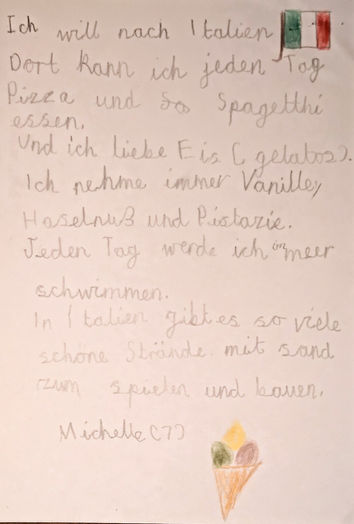 Ich will nach Italien
Dort kann ich jeden Tag
Pizza und So Spagetthi
essen.
Und ich liebe Eis (gelatos).
Ich nehme immer Vanille,
Haselnuß und Pistazie.
Jeden Tag werde ich im meer
schwimmen.
In Italien gibt es so viele
schöne Strände mit sand
zum spielen und bauen.
Michelle (7)